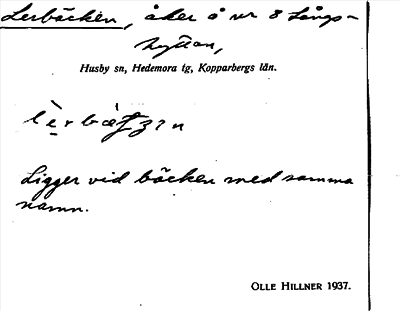 Lerbäcken, åker å nr 8 Långs-
hyttan,
Husby sn, Hedemora tg, Kopparbergs län.
Ligger vid bäcken med samma
namn.
OLLE HILLNER 1937.